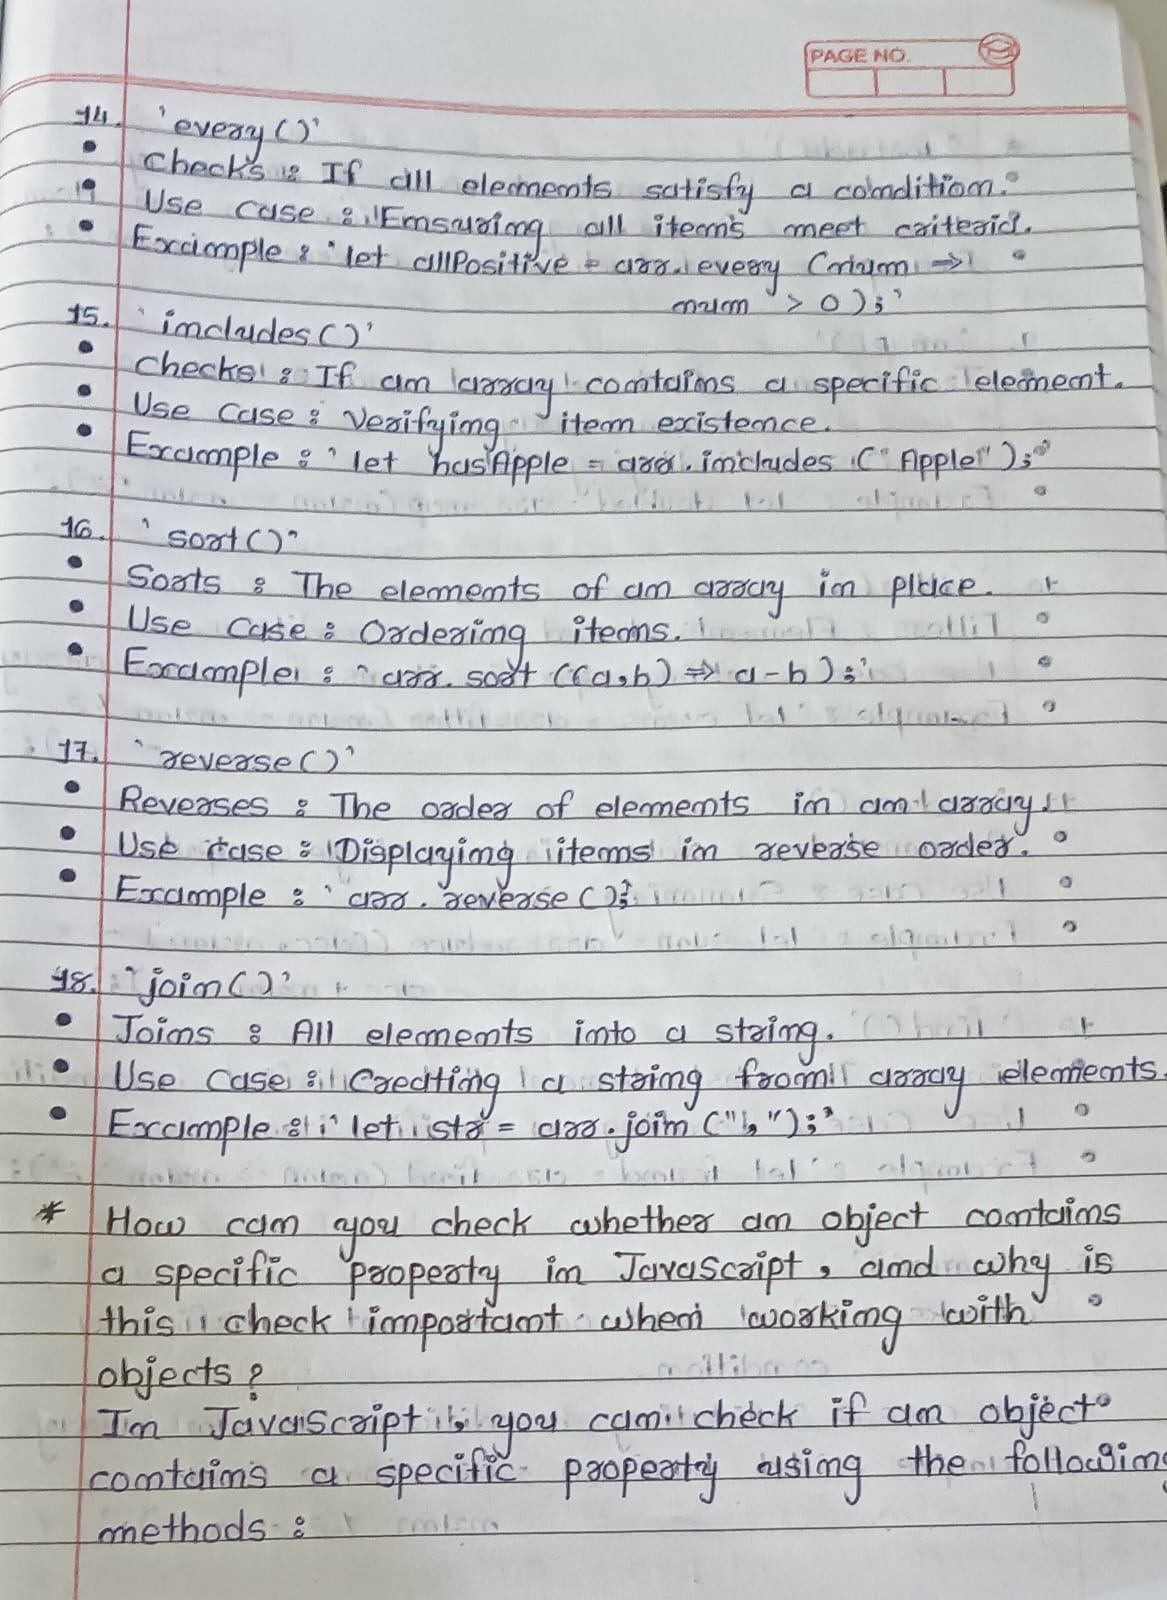 PAGE NO.
14. 'every()'
• Checks : If all elements satisfy a condition.
• Use case : Ensuring all items meet criteria.
• Example : 'let allPositive = arr.every (num =>
num > 0);'
15. 'includes()'
• Checks : If an array contains a specific element.
• Use Case : Verifying item existence.
• Example : 'let hasApple = arr.includes ("Apple");'
16. 'sort()'
• Sorts : The elements of an array in place.
• Use Case : Ordering items.
• Example : 'arr.sort ((a,b) => a-b);'
17. 'reverse()'
• Reverses : The order of elements in an array.
• Use case : Displaying items in reverse order.
• Example : 'arr.reverse();'
18. 'join()'
• Joins : All elements into a string.
• Use Case : Creating a string from array elements.
• Example : 'let str = arr.join (",");'
* How can you check whether an object contains
a specific property in Javascript, and why is
this check important when working with
objects?
In JavaScript, you can check if an object
contains a specific property using the following
methods :